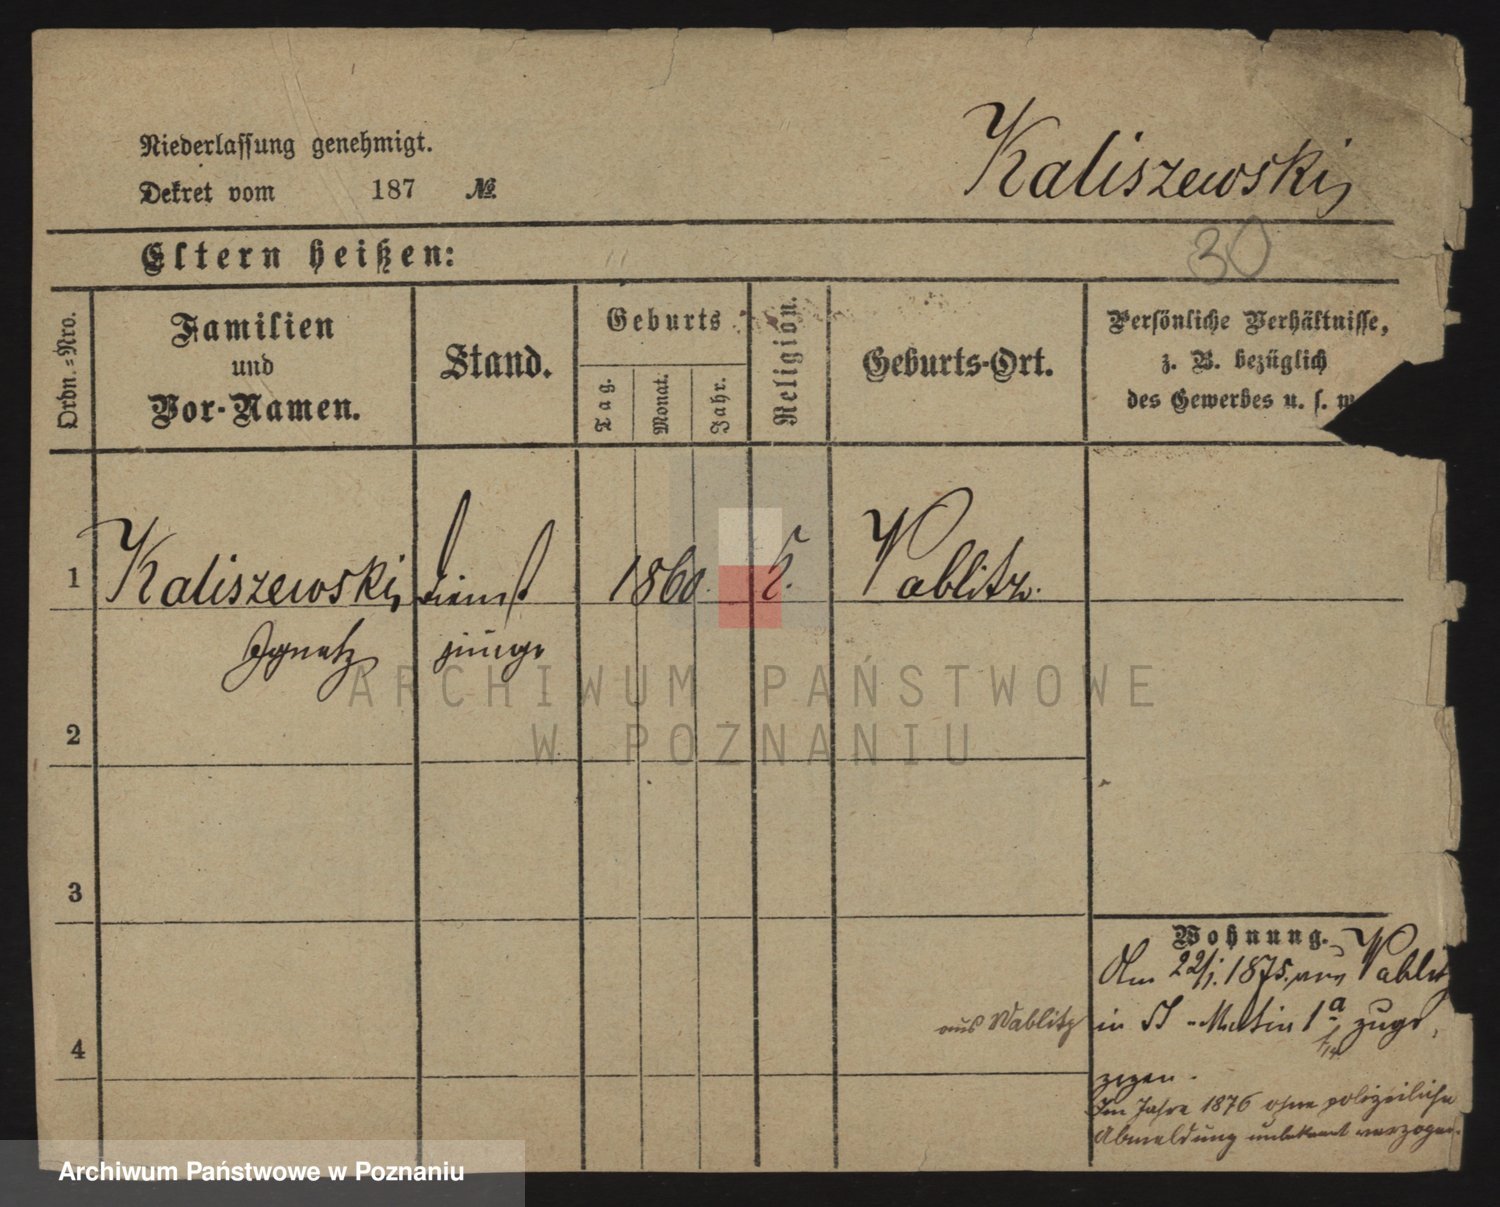 Niederlassung genehmigt.
Dekret vom 187 №
Kaliszewski,
Eltern heißen:
30
Ordn.=Nro.
Familien
und
Vor-Namen.
Stand.
Geburts
Tag.
Monat.
Jahr.
Religion.
Geburts-Ort.
Persönliche Verhältnisse,
z. B. bezüglich
des Gewerbes u. s. w
1 Kaliszewski, Dienst 1860. k. Wablitz.
Ignatz junge
ARCHIWUM PAŃSTWOWE
W POZNANIU
2
3
Wohnung.
Am 22/1. 1875. aus Wablitz
aus Wablitz
in St. Martin 1a zuge,
4
zogen.
Im Jahre 1876 ohne polizeiliche
Abmeldung unbekannt verzogen.
Archiwum Państwowe w Poznaniu